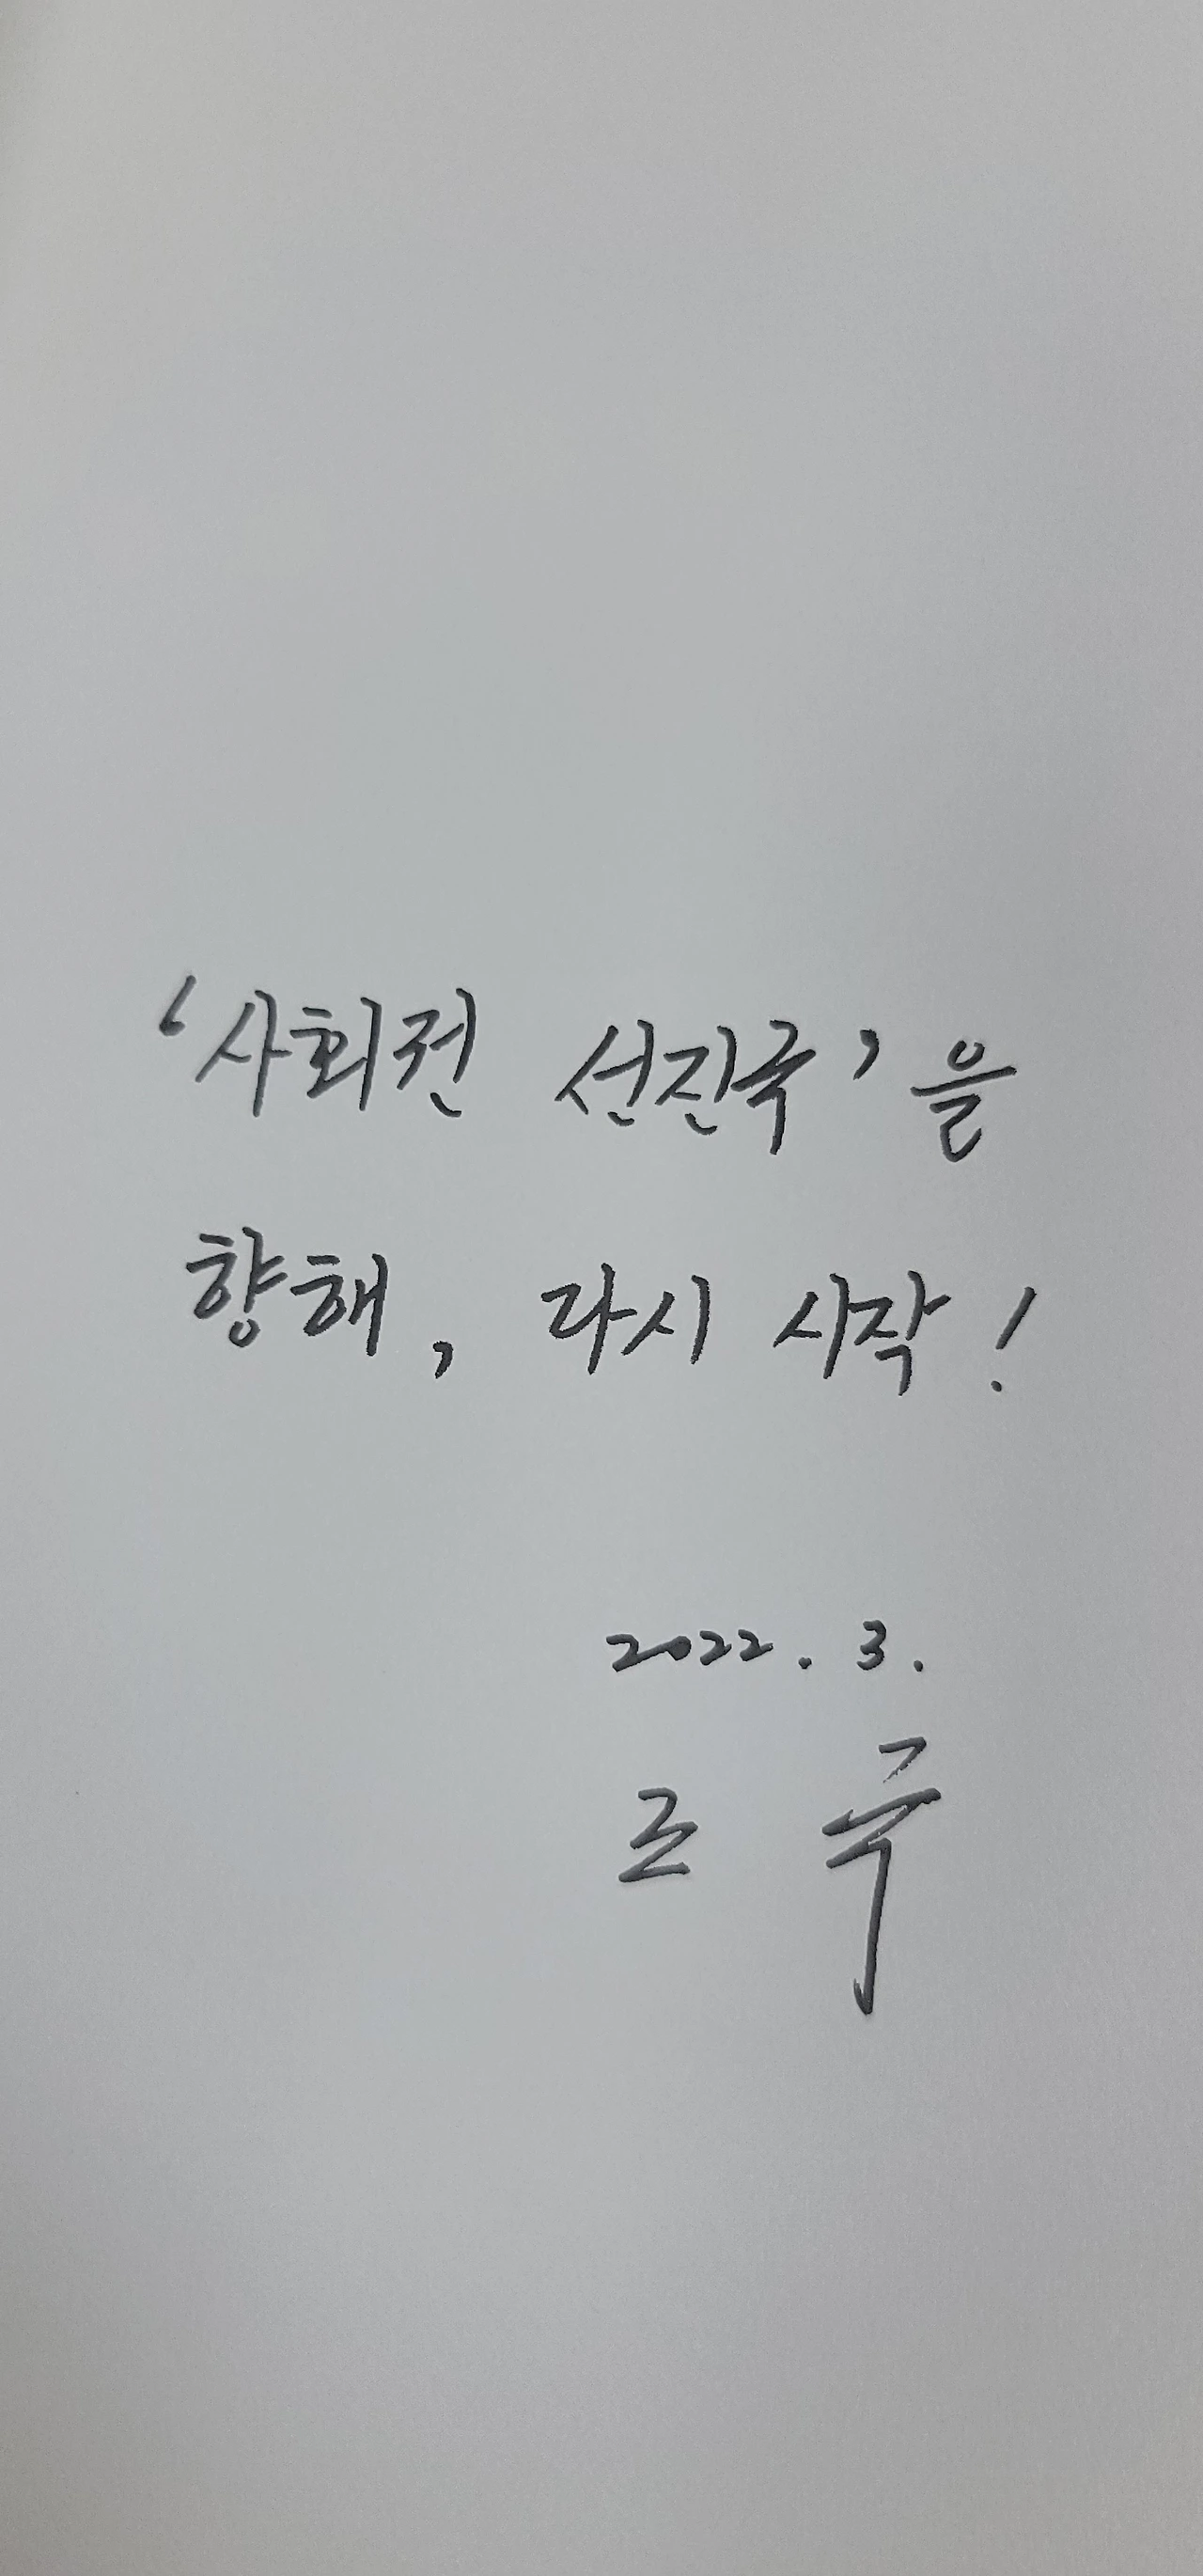 '사회권 선진국'을
향해, 다시 시작!
2022. 3.
조 국